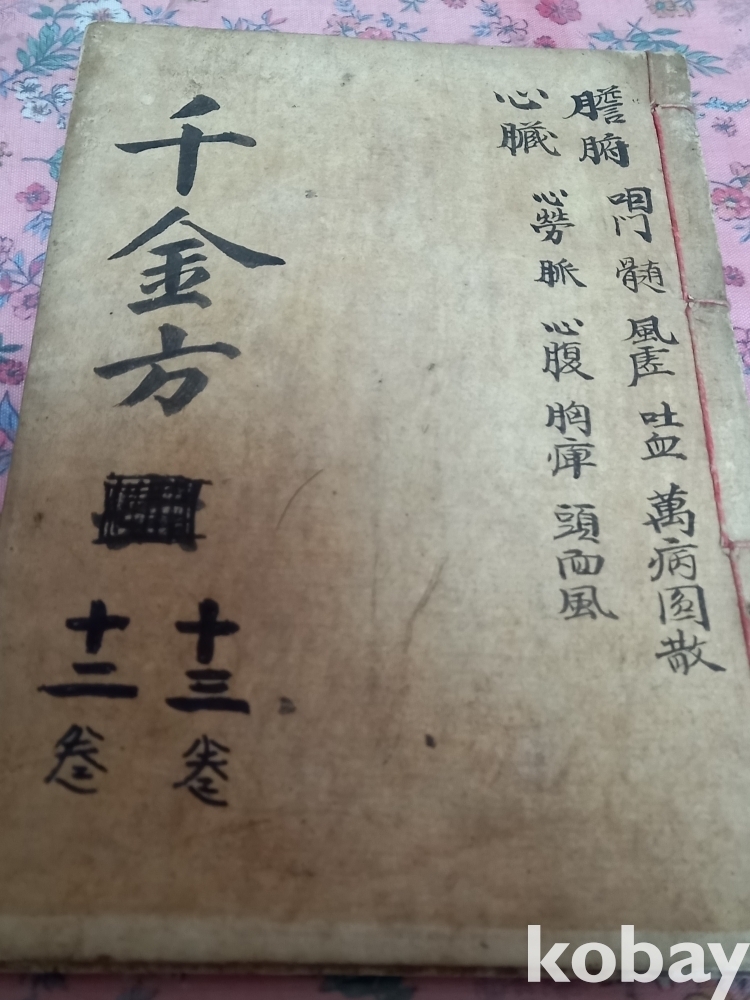 膽腑 咽門 髄 風虛 吐血 萬病圓散
心臓 心勞 脈 心腹 胸痺 頭面風
千金方
十三卷
十二卷
kobay